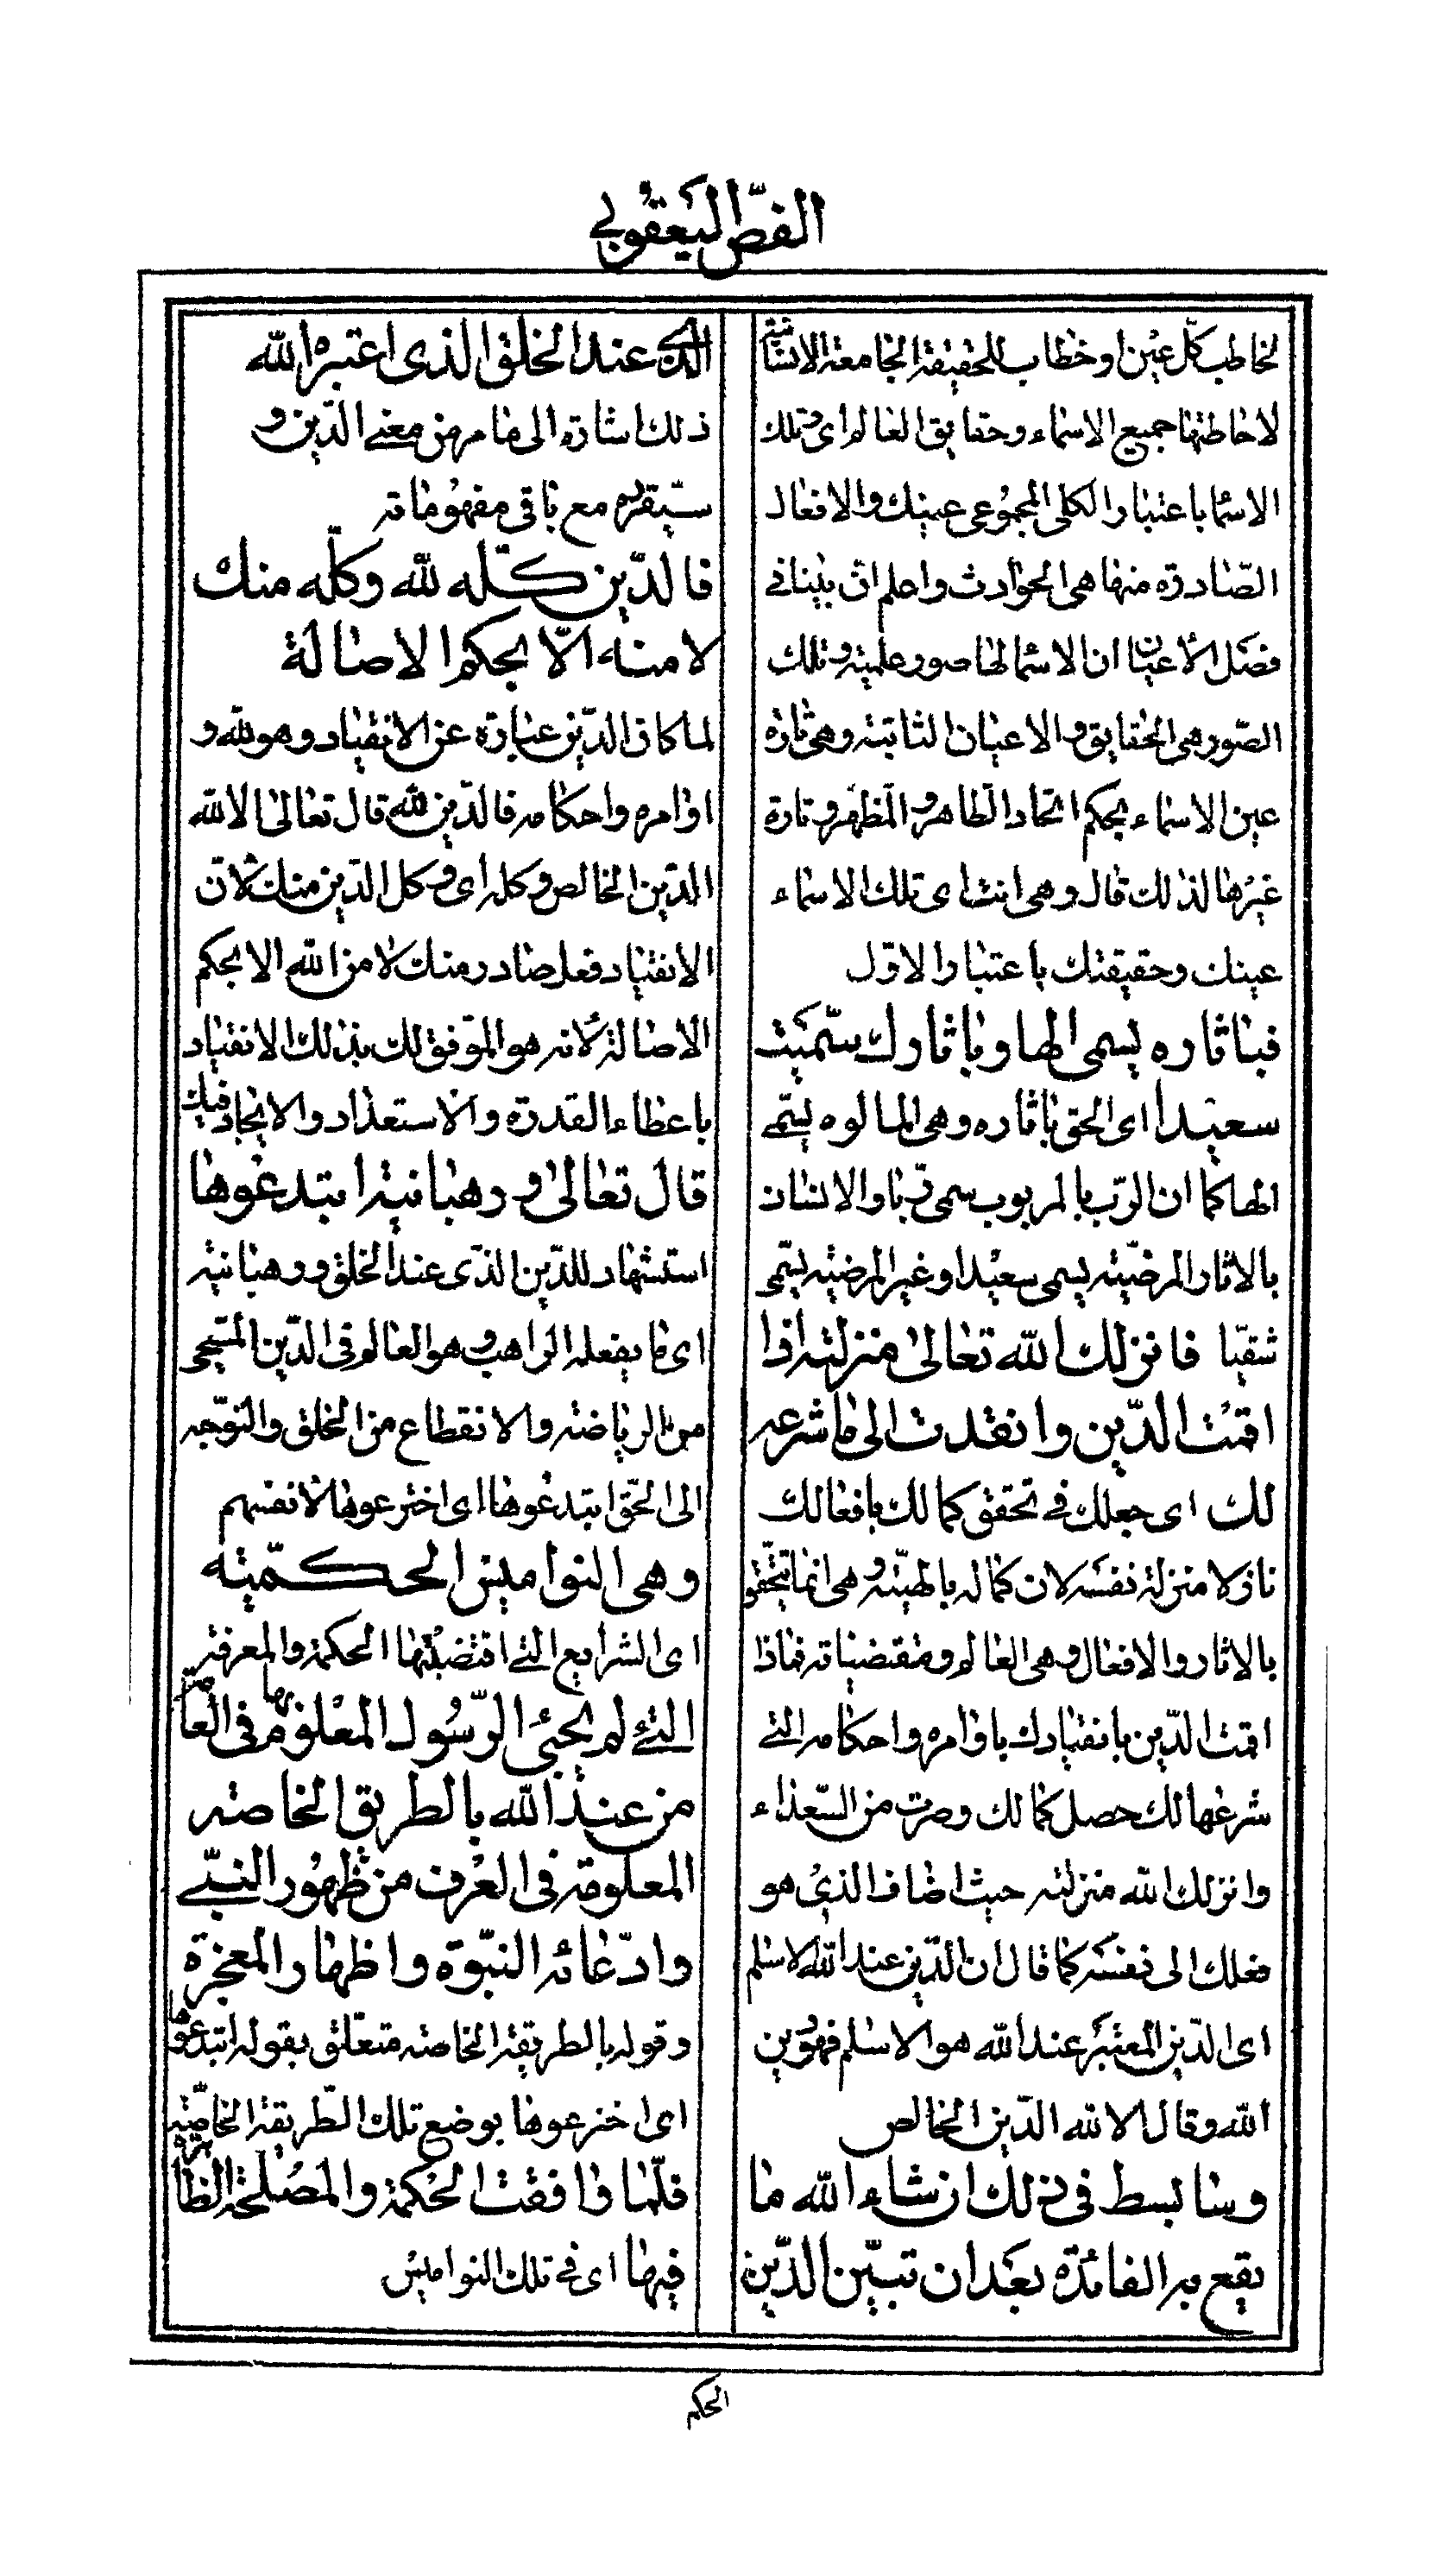 الفصّ اليعقوبي
لخاطب كلّ عين او خطاب للحقيقة الجامعة الانسانية
لاحاطتها جميع الاسماء وحقايق العالم اى وتلك
الاسما باعتبار الكلى المجموعى عينك والافعال
الصّادرة منها هى الحوادث واعلم ان بينا فى
فصل الأعيان ان الاسما لها صور علمية وتلك
الصّور هى الحقايق والاعيان الثابتة وهى تارة
عين الاسماء بحكم اتحاد الظاهر والمظهر وتارة
غيرها لذلك قال وهى انت اى تلك الاسماء
عينك وحقيقتك باعتبار الاوّل
فباثاره يسمى الها وباثارك سمّيت
سعيدا اى الحق باثاره وهى المالوه يسمّى
الها كما ان الرب بالمربوب سمى ربا والانسان
بالاثار المرضيّة يسمى سعيدا وغير المرضية يسمّى
شقيّا فانزلك الله تعالى منزلته اذا
اقمت الدّين وانقدت الى ما شرعه
لك اى جعلك فى تحقق كمالك بافعالك
نازلا منزلة نفسه لان كماله بالهيّته وهى انما يتحّقق
بالاثار والافعال وهى العالم ومقتضياته فاذا
اقمت الدّين بانقيادك باوامره واحكامه التى
شرعها لك حصل كمالك وصرت من السّعداء
وانزلك الله منزلته حيث اضاف الذى هو
فعلك الى نفسه كما قال ان الدّين عند الله الاسلم
اى الدّين المعتبر عند الله هو الاسلم فهو دين
الله وقال الا لله الدّين الخالص
وسابسط فى ذلك ان شاء الله ما
يقع به الفائدة بعد ان تبيّن الدّين
الذى عند الخلق الذى اعتبره الله
ذلك اشارة الى ما مر من معنى الدّين و
ستقرره مع باقى مفهوماته
فالدّين كلّه لله وكلّه منك
لا منه الّا بحكم الاصالة
لما كان الدّين عبارة عن الانقياد وهو لله و
اوامره واحكامه فالدّين لله قال تعالى الا لله
الدّين الخالص وكله اى وكل الدّين منك لانّ
الانقياد فعل صادر منك لا من الله الا بحكم
الاصالة لانه هو الموّفق لك بذلك الانقياد
باعطاء القدرة والاستعداد والايجاد فيك
قال تعالى ورهبانية ابتدعوها
استشهاد للدّين الذّى عند الخلق ورهبانية
اى ما يفعله الراهب وهو العالم فى الدّين المسّيحى
من الرياضة والانقطاع من الخلق والتوّجه
الى الحّق ابتدعوها اى اخترعوها لانفسهم
وهى النواميس الحكميّة
اى الشرايع التى اقتضتها الحكمة والمعرفة
التى لم يجئ الرّسول المعلوم بها فى العامّة
من عند الله بالطريق الخاصة
المعلومة فى العرف من ظهور النبّى
وادّعائه النبّوة واظهار المعجزة
وقوله بالطريقة الخاصة متعّلق بقوله ابتدعوها
اى اخترعوها بوضع تلك الطّريقة الخاصّة
فلّما وافقت الحكمة والمصلحة الظاهرة
فيها اى فى تلك النواميس
الحكم